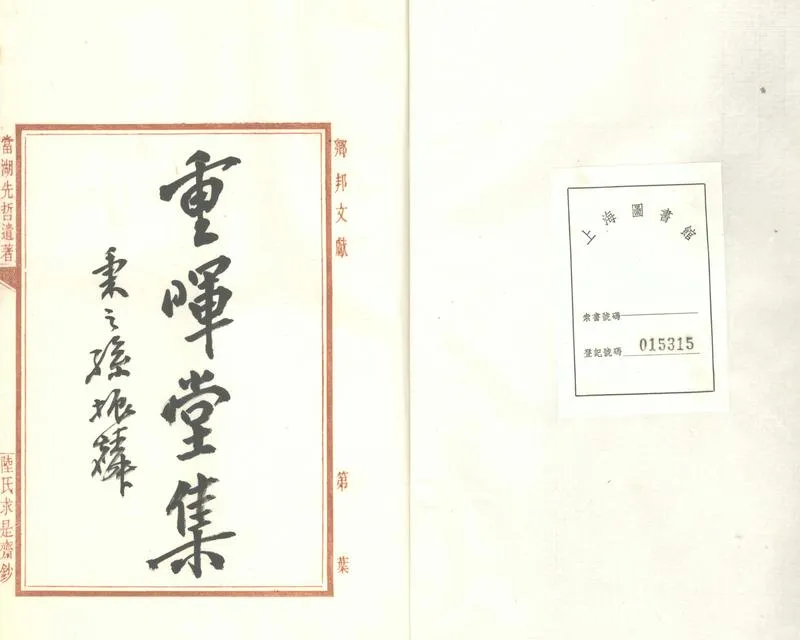 上海圖書館
索書號碼
登記號碼 015315
鄉邦文獻
第 葉
重暉堂集
秉之孫振麟
當湖先哲遺著
陸氏求是齋鈔